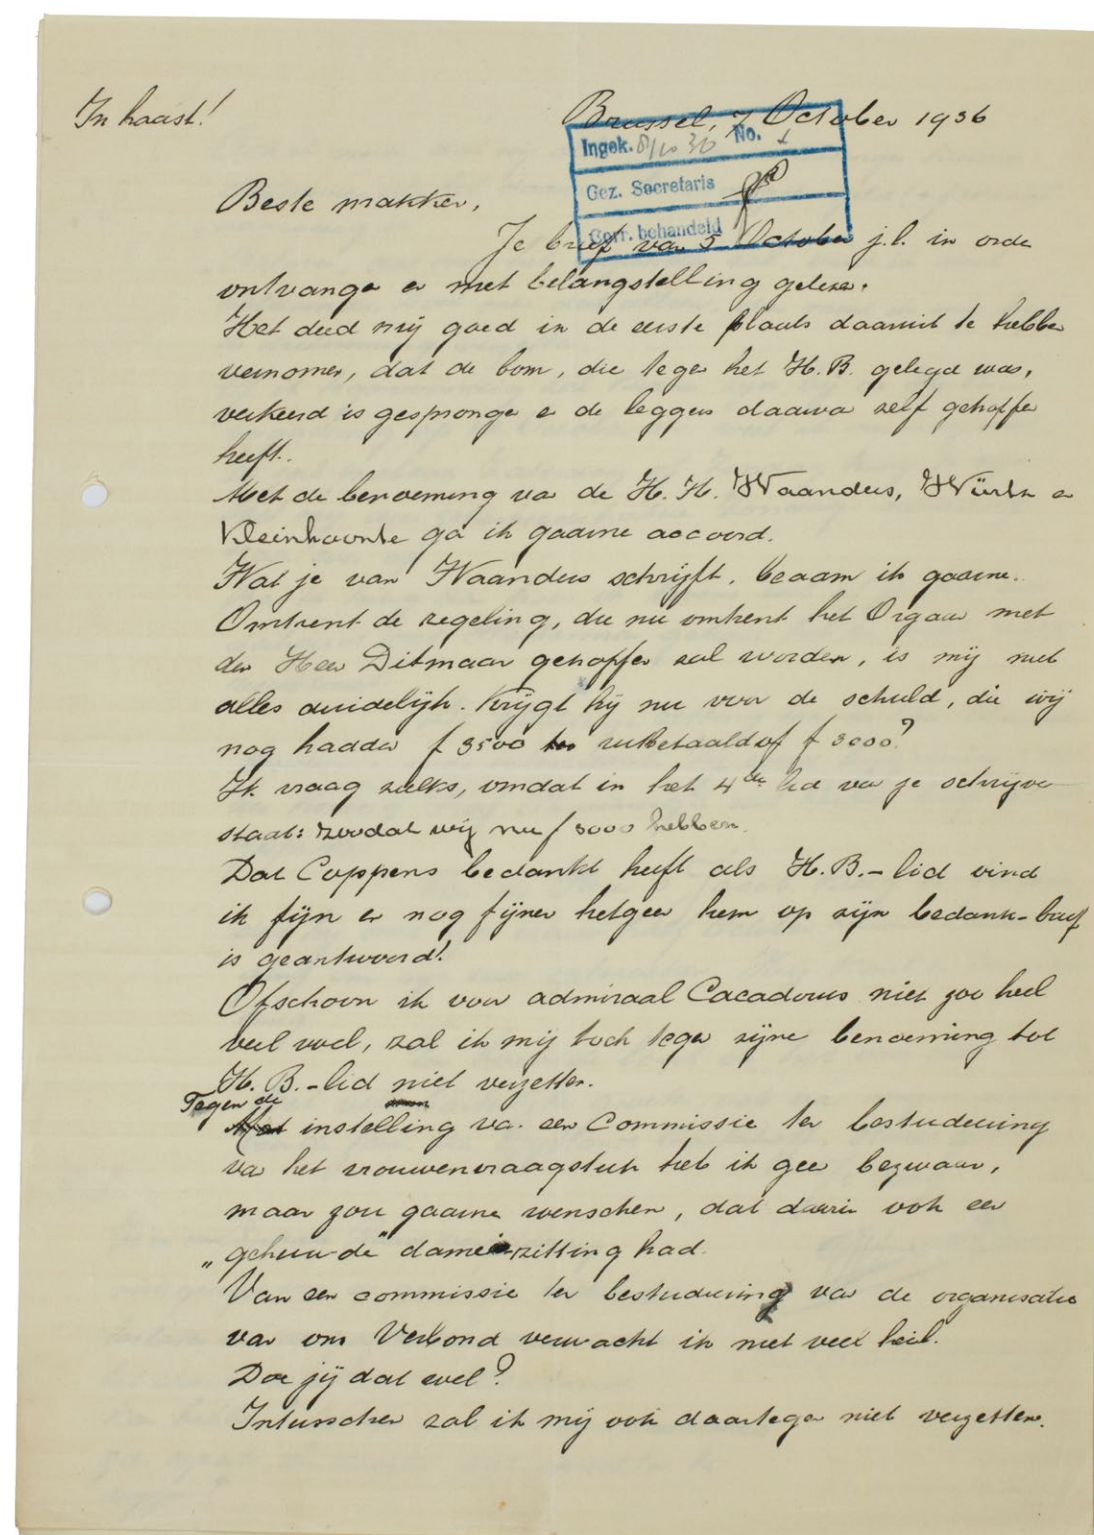 In haast!
Brussel, 7 October 1936
Ingek. 8/10 36 No. 1
Gez. Secretaris
Corr. behandeld
Beste makker,
Je brief van 5 October j.l. in orde
ontvangen en met belangstelling gelezen.
Het deed mij goed in de eerste plaats daaruit te hebben
vernomen, dat de bom, die tegen het H.B. gelegd was,
verkeerd is gesprongen en de leggers daarvan zelf getroffen
heeft.
Met de benoeming van de H.H. Waanders, Würtz en
Kleinhoonte ga ik gaarne accoord.
Wat je van Waanders schrijft, beaam ik gaarne.
Omtrent de regeling, die nu omtrent het Orgaan met
den Heer Ditmaar getroffen zal worden, is mij niet
alles duidelijk. Krijgt hij nu voor de schuld, die wij
nog hadden f 3500 uitbetaald of f 3000?
Ik vraag zulks, omdat in het 4de lid van je schrijven
staat: zoodat wij nu f 3000 hebben.
Dat Coppens bedankt heeft als H.B.-lid vind
ik fijn en nog fijner hetgeen hem op zijn bedank-brief
is geantwoord!
Ofschoon ik voor admiraal Cacadorus niet zoo heel
veel voel, zal ik mij toch tegen zijne benoeming tot
H.B.-lid niet verzetten.
Tegen de
instelling van een Commissie ter bestudeering
van het vrouwenvraagstuk heb ik geen bezwaar,
maar zou gaarne wenschen, dat daarin ook een
„gehuwde" dame zitting had.
Van een commissie ter bestudeering van de organisatie
van ons Verbond verwacht ik niet veel heil.
Doe jij dat wel?
Intusschen zal ik mij ook daartegen niet verzetten.